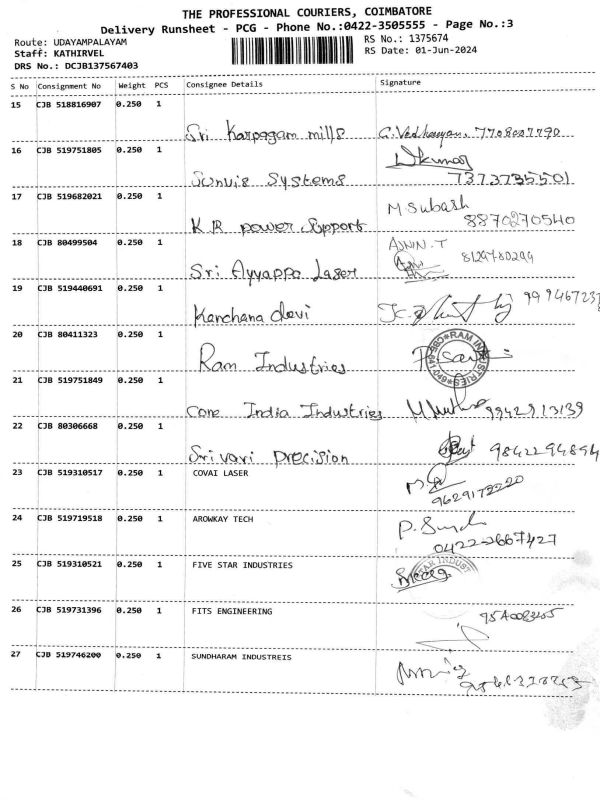 THE PROFESSIONAL COURIERS, COIMBATORE
Delivery Runsheet - PCG - Phone No.:0422-3505555 - Page No.:3
Route: UDAYAMPALAYAM
RS No.: 1375674
Staff: KATHIRVEL
RS Date: 01-Jun-2024
DRS No.: DCJB137567403
S No Consignment No Weight PCS Consignee Details Signature
15 CJB 518816907 0.250 1
Sri Karpagam mills 7708007790
16 CJB 519751805 0.250 1
Sunvis Systems 7373735501
17 CJB 519682021 0.250 1 M Subash
K R power Support 8870270540
18 CJB 80499504 0.250 1 AJNIN.T
Sri Ayyappa Laser 8129780299
19 CJB 519440691 0.250 1
Kanchana devi
20 CJB 80411323 0.250 1
Ram Industries RAM INDUSTRIES
21 CJB 519751849 0.250 1
Core India Industries 9942913139
22 CJB 80306668 0.250 1
Sri vari Precision 9842294894
23 CJB 519310517 0.250 1 COVAI LASER
9629172220
24 CJB 519719518 0.250 1 AROWKAY TECH
0422-2667427
25 CJB 519310521 0.250 1 FIVE STAR INDUSTRIES
26 CJB 519731396 0.250 1 FITS ENGINEERING
27 CJB 519746200 0.250 1 SUNDHARAM INDUSTREIS